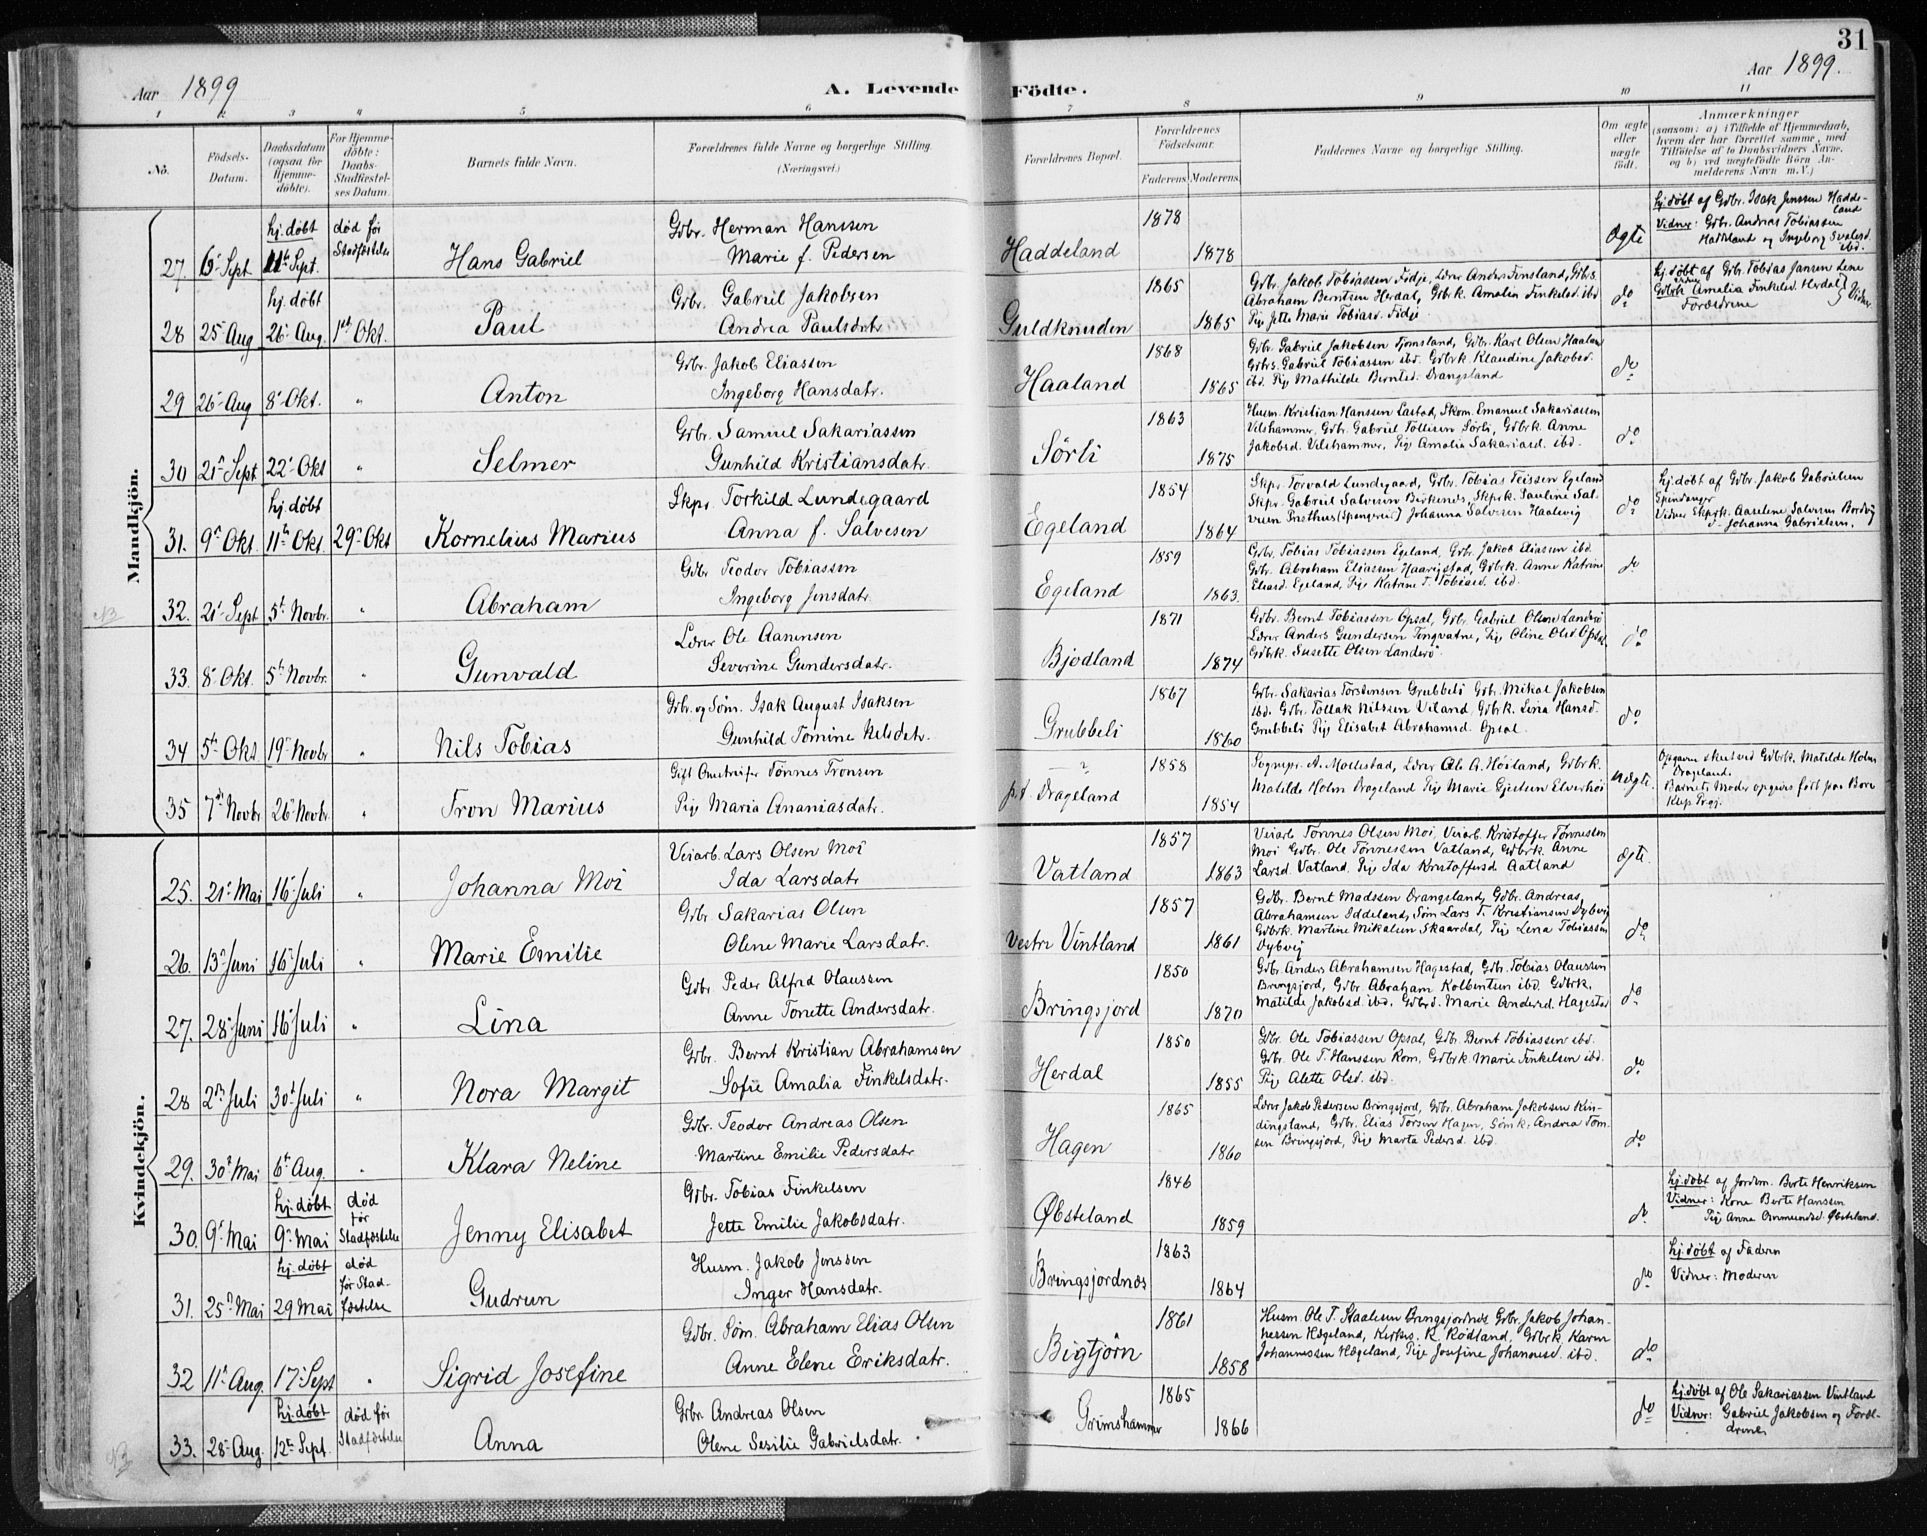 31
Aar 1899
A. Levende
Födte.
Aar 1899.
1 2 3 4 5 6 7 8 9 10 11
No.
Födsels-
Datum.
Daabsdatum
(ogsaa for
Hjemme-
döbte).
For Hjemme-
döbte:
Daabs-
Stadfæstel-
ses Datum.
Barnets fulde Navn.
Forældrenes fulde Navne og borgerlige Stilling.
(Næringsvei.)
Forældrenes Bopæl.
Forældrenes
Födselsaar.
Faderens.
Moderens.
Faddernes Navne og borgerlige Stilling.
Om ægte
eller
uægte
födt.
Anmærkninger
(saasom: a) i Tilfælde af Hjemmedaab,
hvem der har forrettet samme, med
Tilföielse af to Daabsvidners Navne,
og b) ved uægtefödte Börn An-
melderens Navn m. V.)
Mandkjön.
27. 6. Sept
hj. døbt
11te Sept.
død før
Stadfæstelse
Hans Gabriel
Gdbr. Herman Hanssen
Marie f. Pedersen
Haddeland
1878
1878
Ægte
hj. døbt af Gdbr. Isak Jenssen Hadde-
land
Vidner: Gdbr. Andreas Tobiassen
Haddeland og Ingeborg Svalesd.
ibd.
28 25 Aug
hj. døbt
26 Aug.
1st Okt.
Paul
Gdbr. Gabriel Jakobsen
Andrea Paulsdatr
Guldknuden
1865
1865
Gdbr. Jakob Tobiassen Fidje, Lærer Anders Finsland, Gdbrs.
Abraham Berntsen Herdal, Gdbrk. Amalia Finkelsd. ibd
Pige Jette Marie Tobiasd. Fidje.
do
hj. døbt af Gdbr. Tobias Jansen Lene
Gdbrk Amelia Finkelsd. Herdal } Vidner
Forældrene
29 26 Aug 8 Okt. "
Anton
Gdbr. Jakob Eliassen
Ingeborg Hansdatr.
Haaland
1868
1865
Gdbr. Gabriel Jakobsen Tjomsland, Gdbr. Karl Olsen Haaland
Gdbrs. Gabriel Tobiassen ibd. Gdbrk. Klaudine Jakobsd.
ibd. Pige Mathilde Berntsd. Drangsland
do
30 21 Sept 22 Okt "
Selmer
Gdbr. Samuel Sakariassen
Gunhild Kristiansdatr.
Sørli
1863
1875
Husm. Kristian Hanssen Lastad, Skom. Emanuel Sakariassen
Velshammer, Gdbr. Gabriel Tollisen Sørli, Gdbrk. Anne
Jakobsd. Velshammer, Pige Amalia Sakariasd. ibd.
do
31. 9 Okt.
hj. døbt
11te Okt.
29 Okt
Kornelius Marius
Skpr. Torkild Lundegaard
Anna f. Salvesen
Egeland
1854
1864
Skpr. Torvald Lundegaard, Gdbr. Tobias Teissen Egeland
Skpr. Gabriel Salvesen Birkenes, Skprk. Pauline Sal-
vesen Johanna Salvesen Haalevig
do
hj. døbt af Gdbr. Jakob Gabrielsen
Spindanger
Vidner Skprk. Aaseline Salvesen
Johanna Gabrielsen.
32. 21 Sept 5te Novbr. "
Abraham
Gdbr Teodor Tobiassen
Ingeborg Jensdatr.
Egeland
1859
1863.
Gdbr. Tobias Tobiassen Egeland, Gdbr. Jakob Eliassen ibd.
Gdbr. Abraham Eliassen Haarigstad, Gdbrk. Anne Katrine
Eliasd. Egeland, Pige Katrine T. Tobiasd. ibd.
do
33. 8 Okt. 5te Novbr. "
Gunvald
Lærer Ole Aanensen
Severine Gundersdatr.
Bjodland
1871
1874
Gdbr. Bernt Tobiassen Opsal, Gdbr. Gabriel Olsen Landerø
Lærer Anders Gundersen Tingvatne, Pige Oline Olsd Opsal,
Gdbrk. Susette Olsen Landerø.
do
34 5te Okt 19 Novbr "
Nils Tobias
Gdbr. og Søm. Isak August Isaksen
Gunhild Tomine Nilsdatr.
Grubbeli
1867
1860
Gdbr. Sakarias Torstensen Grubbeli Gdbr. Mikal Jakobsen
ibd. Gdbr. Tollak Nilssen Viland, Gdbrk. Lina Hansd.
Grubbeli Pige Elisabet Abrahamsd. Opsal.
do
35 7de Novbr. 26 Novbr. "
Tron Marius
Gift Tønnes Tronsen
Pige Maria Ananiasdatr.
?
p.t. Drageland
1858
1854
Sognepr. A. Mollestad, Lærer Ole A. Høiland, Gdbrk.
Matilde Holm Drageland Pige Marie Gjertsen Elverhøi
Uægte.
Opgave skeet ved Gdbrk. Matilde Holm
Drageland.
Barnets Moder opgives født paa Bore
Klep Prgj.
Kvindekjön.
25. 21 Mai 16 Juli "
Johanna Moi
Veiarb. Lars Olsen Moi
Ida Larsdatr
Vatland
1857
1863
Veiarb Tønnes Olsen Moi, Veiarb. Kristoffer Tønnessen
Moi Gdbr. Ole Tønnessen Vatland, Gdbrk Anne
Larsd. Vatland. Pige Ida Kristoffersd Aatland
Ægte.
26. 13 Juni 16 Juli "
Marie Emilie
Gdbr Sakarias Olsen
Olene Marie Larsdatr.
Vestre Vintland
1857
1861
Gdbr. Bernt Madssen Drangeland, Gdbr. Andreas
Abrahamsen Iddeland, Søm Lars T. Kristiansen Dybvig
Gdbrk. Martine Mikalsen Skaardal, Pige Lena Tobiassen
Dybvig
do
27. 28 Juni 16 Juli "
Lina
Gdbr Peder Alfred Olaussen
Anne Tonette Andersdatr.
Bringsjord
1850
1870
Gdbr. Anders Abrahamsen Hagestad, Gdbr. Tobias Olaussen
Bringsjord, Gdbr. Abraham Kolbentsen ibd. Gdbrk.
Matilde Jakobsd. ibd. Gdbrd. Marie Andersd. Hagestad
do
28 2den Juli 30 Juli "
Nora Margit
Gdbr. Bernt Kristian Abrahamsen
Sofie Amalia Finkelsdatr.
Herdal
1850
1855
Gdbr. Ole Tobiassen Opsal, Gdb. Bernt Tobiassen ibd.
Gdbr. Ole T. Hanssen Rom, Gdbrk Marie Finkelsen ibd.
Pige Alette Olsd. ibd.
do
29. 30 Mai 6te Aug. "
Klara Neline
Gdbr. Teodor Andreas Olsen
Martine Emilie Pedersdatr
Hagen
1865
1860
Lærer Jakob Pedersen Bringsjord, Gdbr. Abraham Jakobsen Kin-
dingsland, Gdbr. Elias Torsen Hagen, Sømk. Andrea Tom-
sen Bringsjord, Pige Marta Pedersd. ibd.
do
30. 9 Mai
hj. døbt
9 Mai
død
før
Stadfæstelse
Jenny Elisabet
Gdbr. Tobias Finkelsen
Jette Emilie Jakobsdatr.
Øbsteland
1846
1859
do
hj. døbt af Jordm. Berte Henriksen
Vidner: Kone Berte Hanssen
Pige Anne Ommundsd. Øbsteland.
31. 25 Mai
hj. døbt
29 Mai
død
før Stad-
fæstelse
Gudrun
Husm. Jakob Jenssen
Inger Hansdatr.
Bringsjordnes
1863
1864
do
hj. døbt af Faderen
Vidner: Moderen
32 11 Aug. 17 Sept "
Sigrid Josefine
Gdbr. Søm. Abraham Elias Olsen
Anne Elene Eriksdatr.
Bigtjørn
1861
1858
Husm. Ole T. Staalesen Bringsjordnes Gdbr. Jakob Johan-
nessen Hægeland, Kirkes. K. Rødland, Gdbrk Karen
Johannessen Hægeland, Pige Josefine Johannesd. ibd.
do
33. 28 Aug.
hj. døbt
12te Sept.
død før
Stadfæstelse
Anna
Gdbr. Andreas Olsen
Olene Sesilie Gabrielsdatr.
Grimshammer
1865
1866
do
hj. døbt af Ole Sakariassen Vintland
Vidner: Gabriel Jakobsen og Foræl-
drene